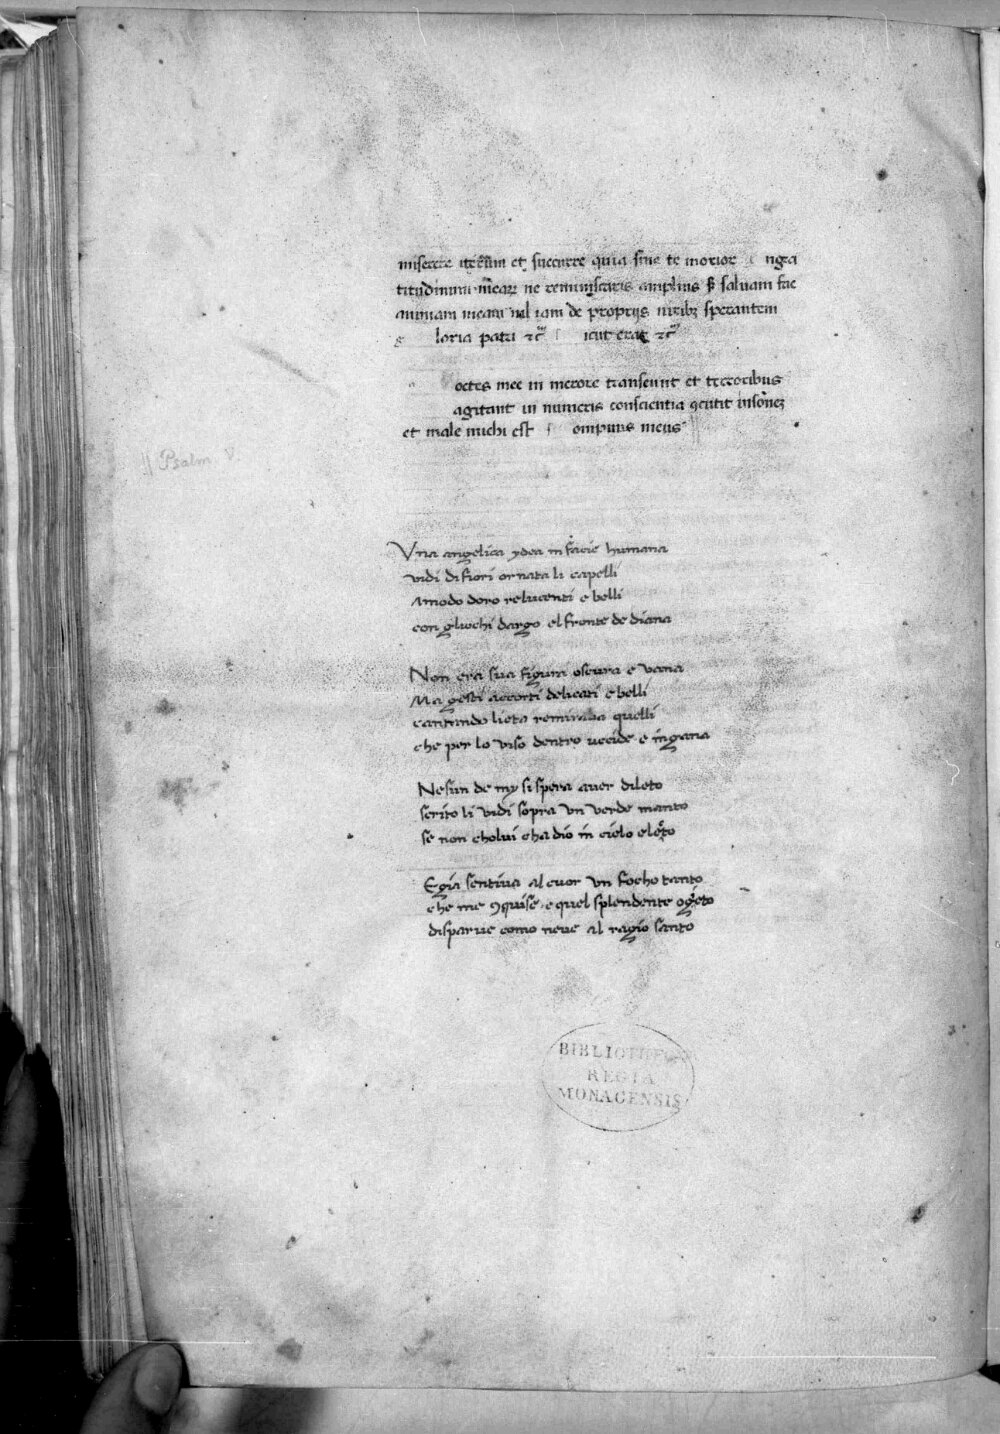 miserere iterum et succurre quia sine te morior ngra
titudinum mearꝝ ne reminiscaris amplius sꝫ saluam fac
animam meam nil iam de proprijs uiribꝫ sperantem
g loria patri ⁊c̃ icut erat ⁊c̃
octes mee in merore transeunt et terroribus
agitant in numeris conscientia ꝯcutit insõnez
et male michi est ompnus meus
|| Psalm V.
Vna angelica ydea in facie humana
vidi di fiori ornata li capelli
Amodo doro relucenti e belli
con gluochi dargo el fronte de diana
Non era sua figura oscura e vana
Ma gesti accorti delicati e belli
cantando lieta remiraua quelli
che per lo viso dentro uccide e ingana
Nesun de my si spera auer dileto
scrito li vidi sopra vn verde manto
se non cholui cha dio in cielo eleto
Egia sentiua al cuor vn focho tanto
che me ꝯquise e quel splendente ogieto
disparue como neue al ragio santo
BIBLIOTHECA
REGIA
MONACENSIS